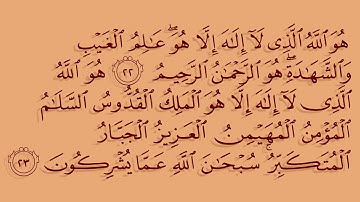 هُوَ اللَّهُ الَّذِى لَآ إِلَٰهَ إِلَّا هُوَ ۖ عَالِمُ الْغَيْبِ
وَالشَّهَادَةِ ۖ هُوَ الرَّحْمَٰنُ الرَّحِيمُ ۝٢٢ هُوَ اللَّهُ
الَّذِى لَآ إِلَٰهَ إِلَّا هُوَ الْمَلِكُ الْقُدُّوسُ السَّلَامُ
الْمُؤْمِنُ الْمُهَيْمِنُ الْعَزِيزُ الْجَبَّارُ
الْمُتَكَبِّرُ ۚ سُبْحَانَ اللَّهِ عَمَّا يُشْرِكُونَ ۝٢٣